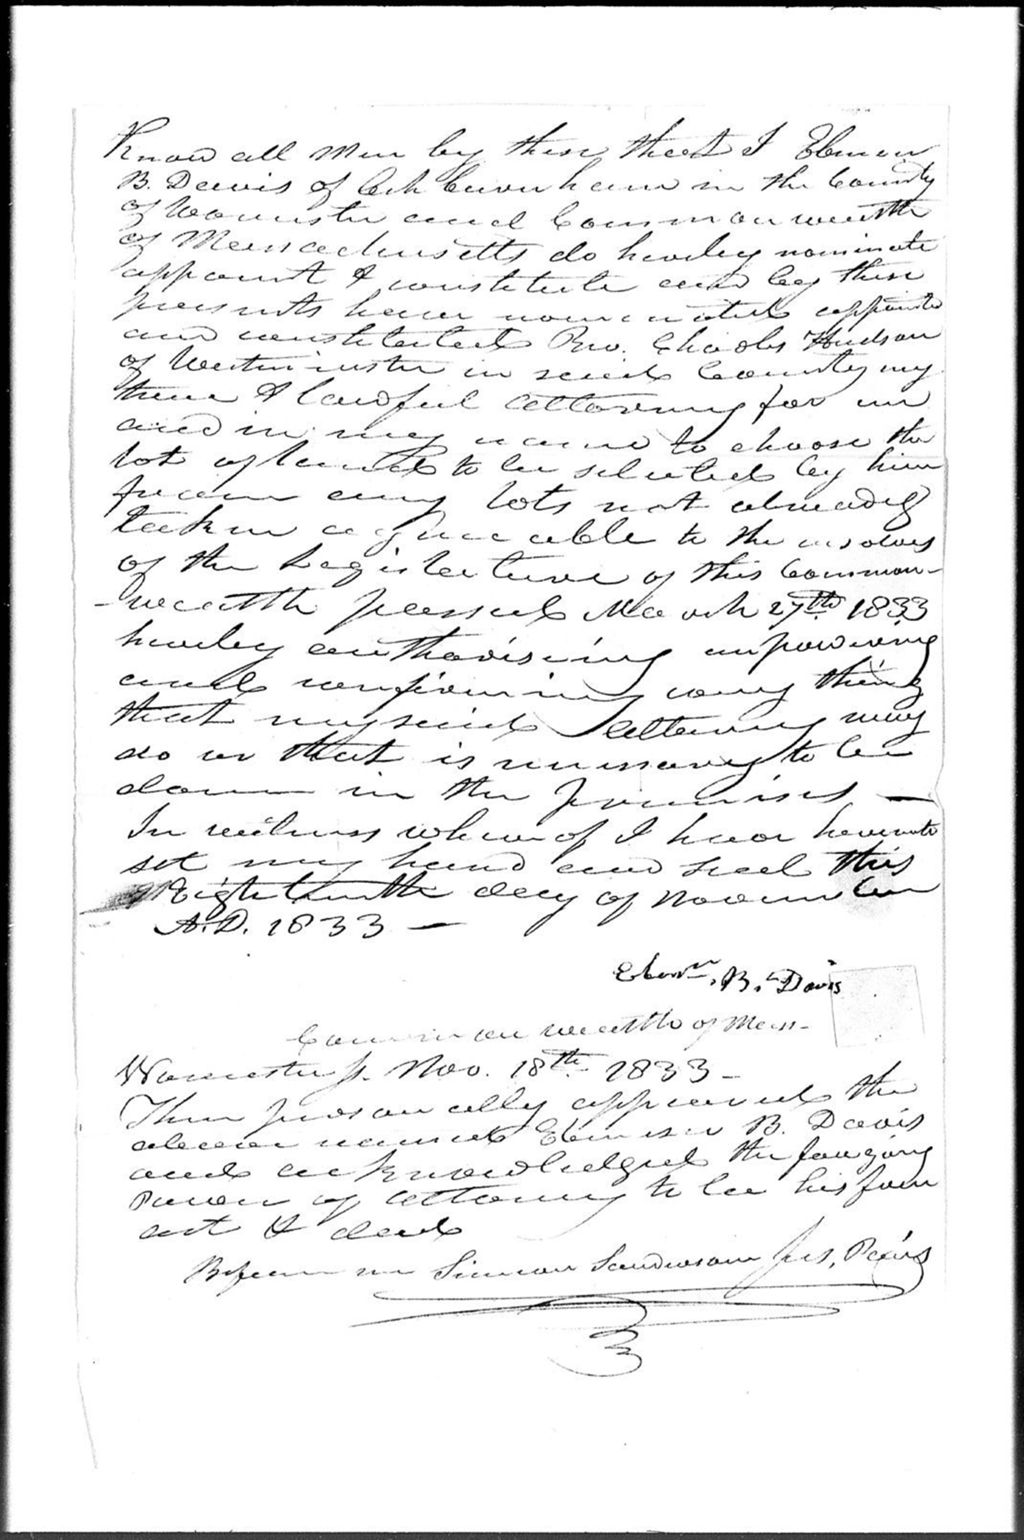 Know all Men by these that I Ebenezer
B. Davis of Ashburnham in the County
of Worcester and Commonwealth
of Massachusetts do hereby nominate
appoint & constitute and by these
presents have nominated appointed
and constituted Rev. Charles Hudson
of Westminster in said County my
true & lawful attorney for me
and in my name to choose the
lot of land to be selected by him
from any lots not already
taken agreeable to the resolves
of the Legislature of this Common-
-wealth passed March 27th 1833
hereby authorising impowering
and confirming any thing
that my said Attorney may
do or that is necessary to be
done in the premises —
In witness whereof I have hereunto
set my hand and seal this
Eighteenth day of November
A.D. 1833 —
Ebenr. B. Davis
Commonwealth of Mass-
Worcester ss. Nov. 18th 1833 -
Then personally appeared the
above named Ebenezer B. Davis
and acknowledged the foregoing
Power of attorney to be his free
act & deed
Before me Simeon Sanderson Jus. Peace